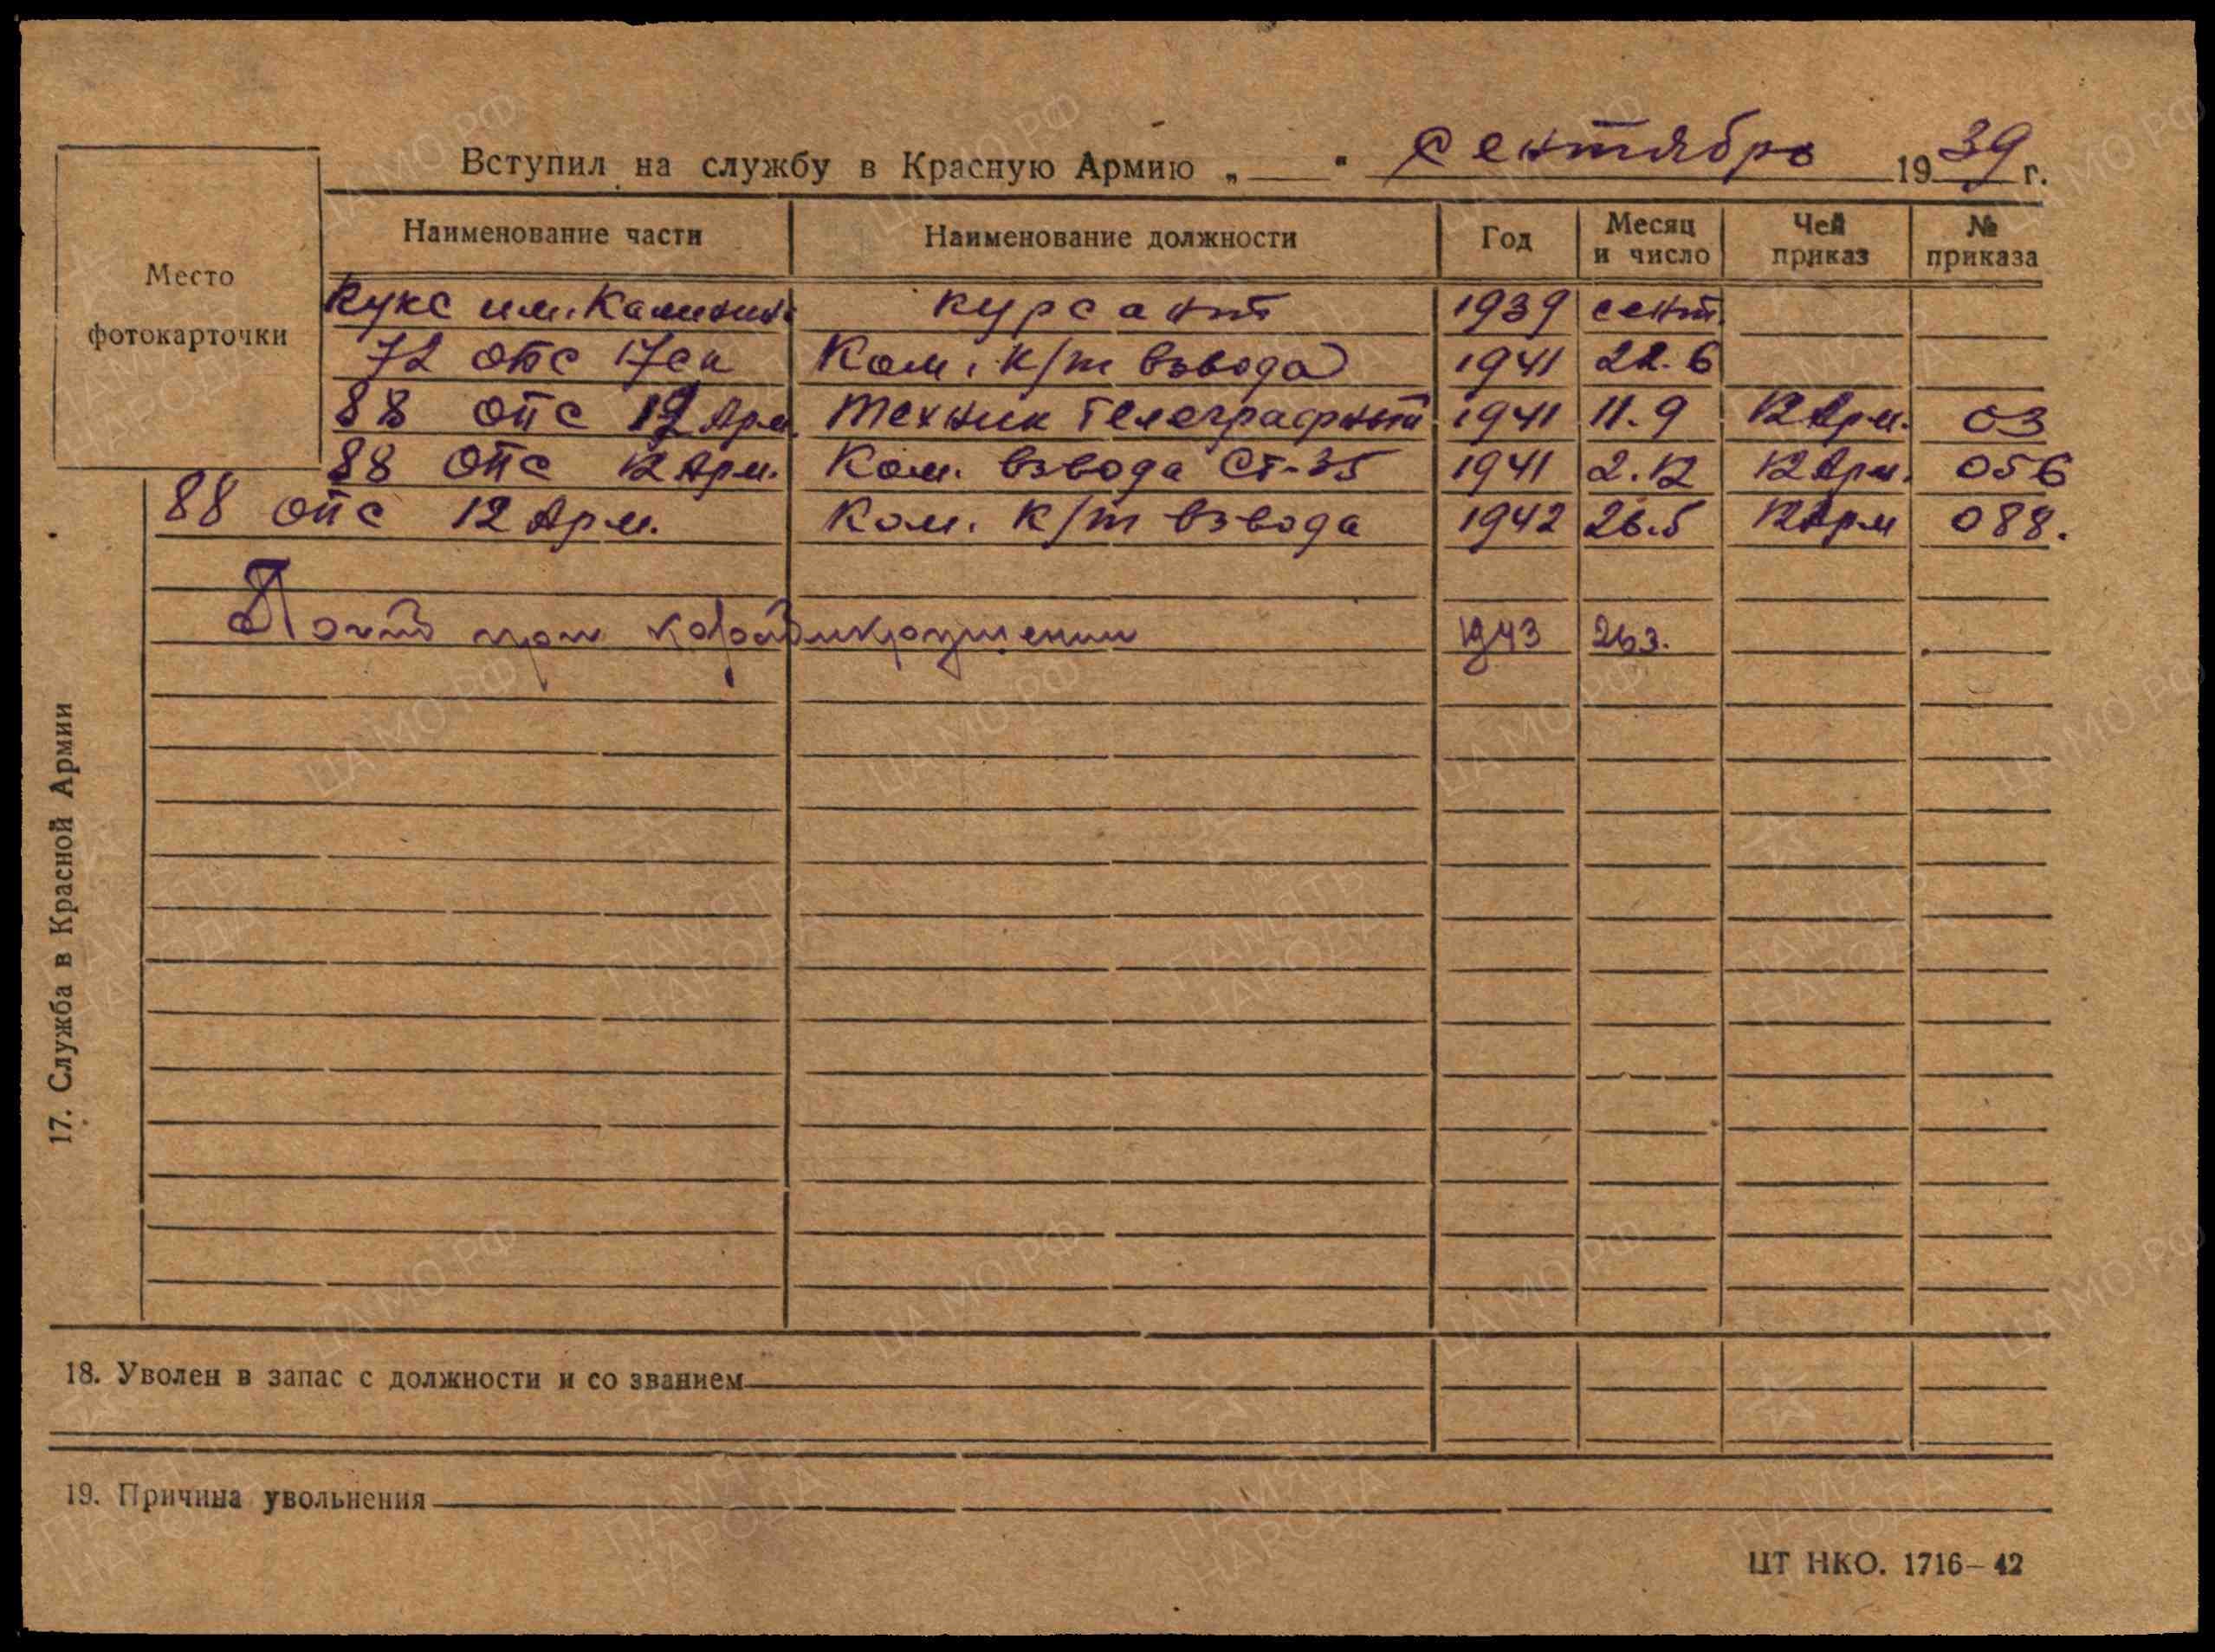 Вступил на службу в Красную Армию „ " сентябрь 1939 г.
Место фотокарточки
Наименование части Наименование должности Год Месяц и число Чей приказ № приказа
Кукс им. Калинина курсант 1939 сент.
72 опс 17ск Ком. к/т взвода 1941 22.6
88 опс 12 Арм. Техник телеграфный 1941 11.9 12 Арм. 03
88 опс 12 Арм. Ком. взвода Ст-35 1941 2.12 12 Арм. 056
88 опс 12 Арм. Ком. к/т взвода 1942 26.5 12 Арм 088.
при кораблекрушении 1943 26.3.
17. Служба в Красной Армии
18. Уволен в запас с должности и со званием
19. Причина увольнения
ЦТ НКО. 1716—42
ЦА МО РФ
ПАМЯТЬ НАРОДА